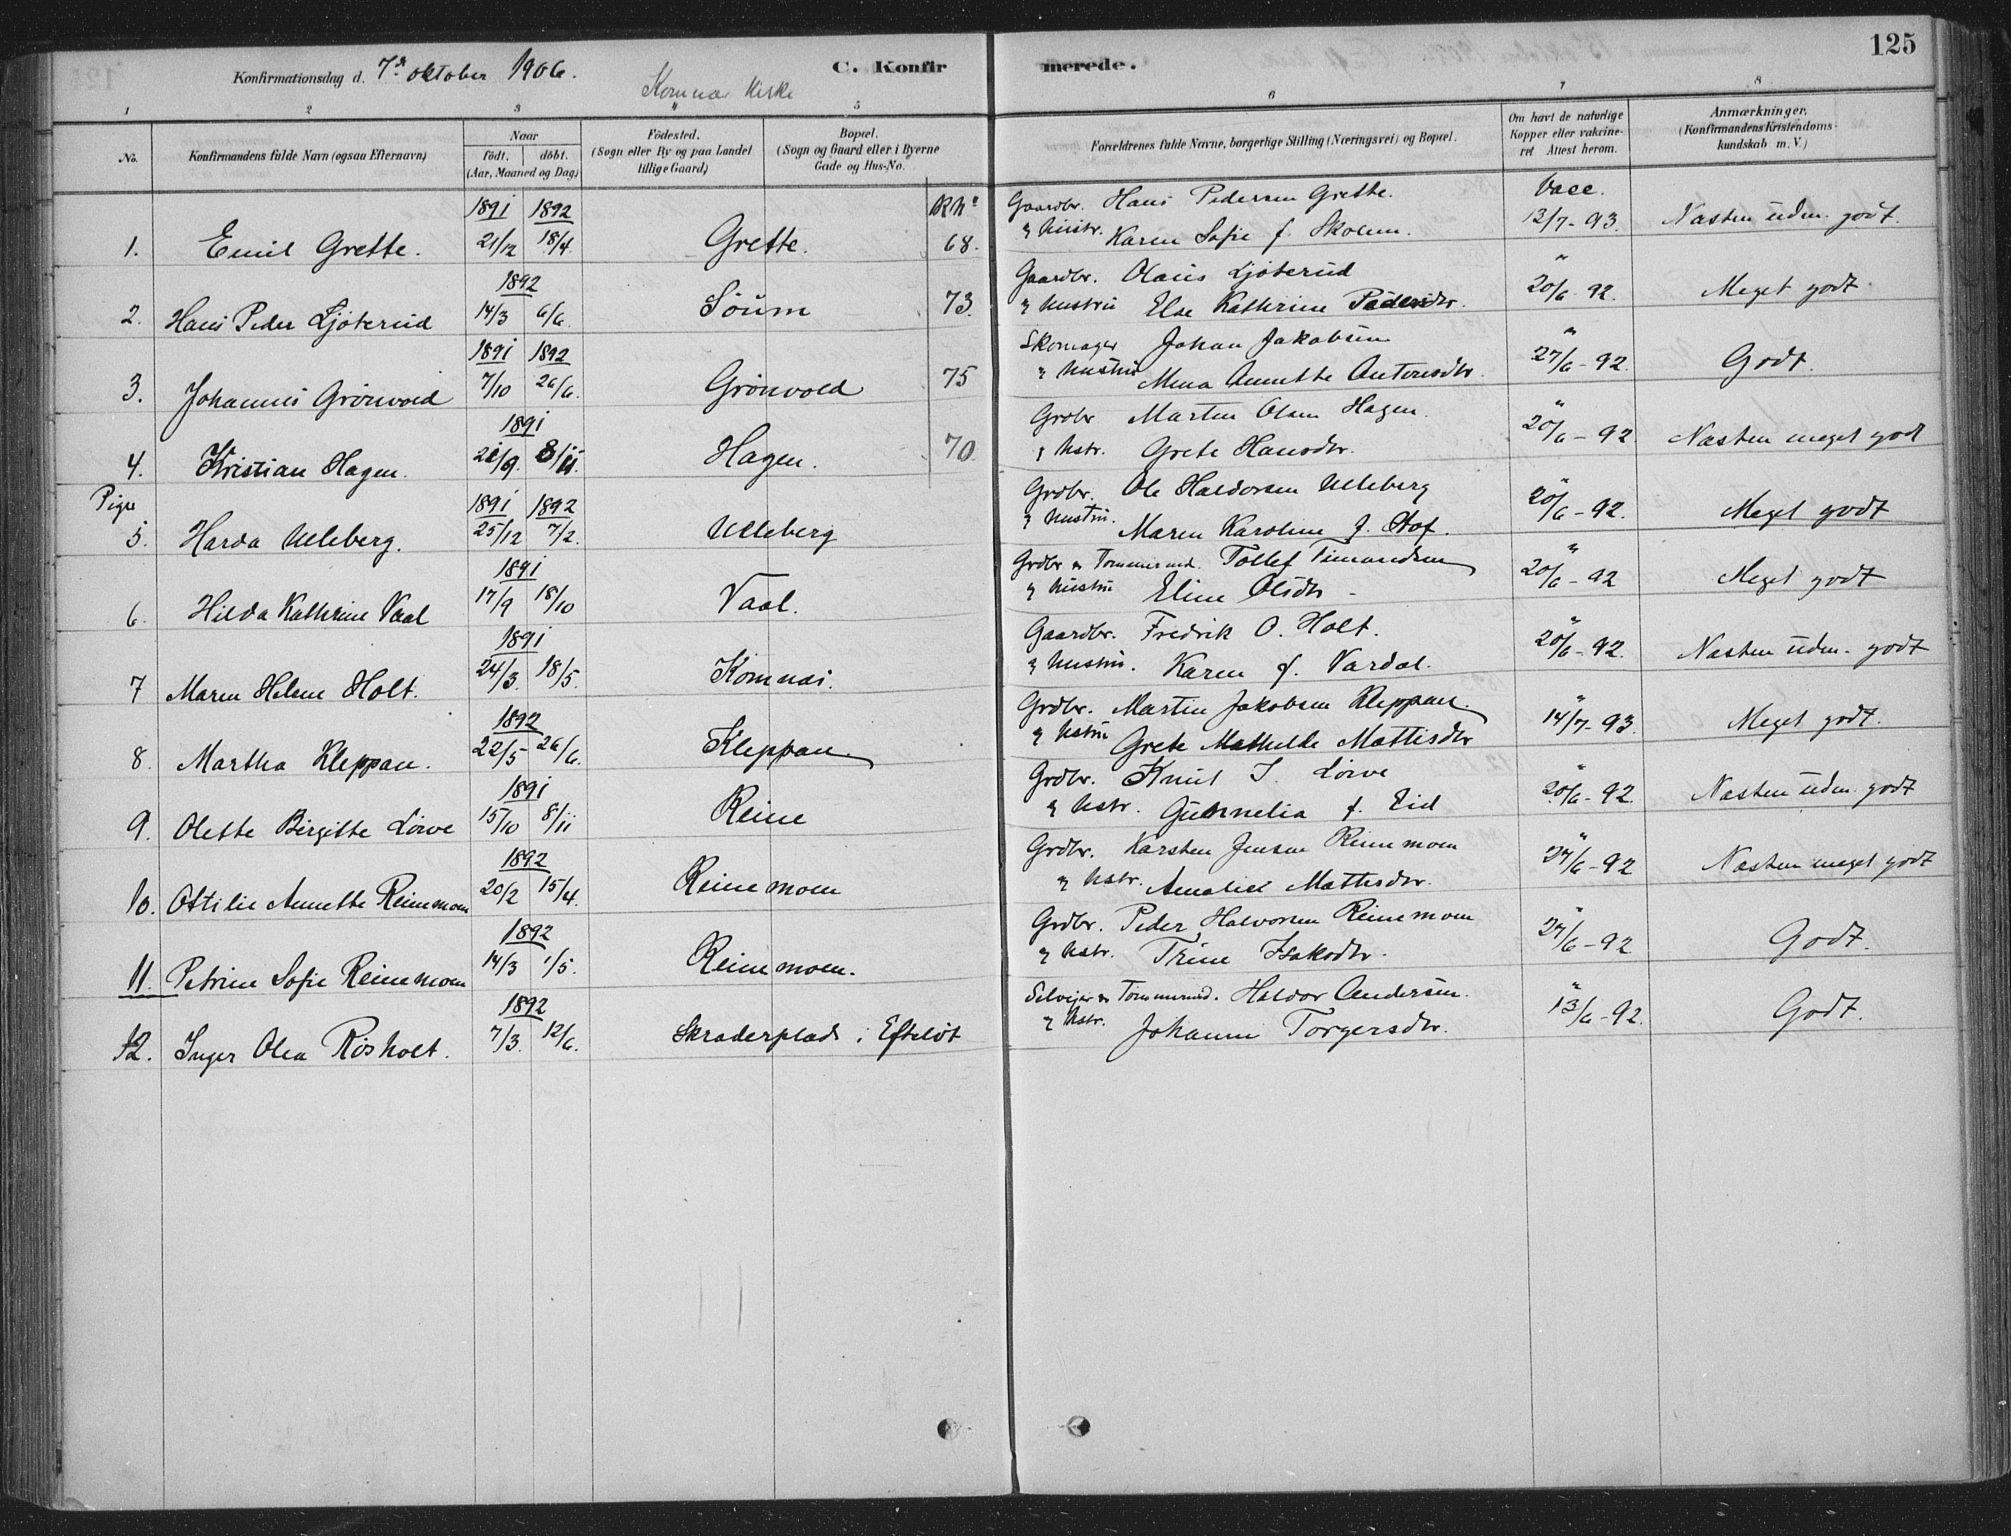 125
Konfirmationsdag d. 7de oktober 1906. C. Konfirmerede.
Komnæs Kirke
1 2 3 5 6 7 8
No. Konfirmandens fulde Navn (ogsaa Efternavn) Naar født. døbt. (Aar, Maaned og Dag) Fødested. (Sogn eller By og paa Landet tillige Gaard) Bopæl. (Sogn og Gaard eller i Byerne Gade og Hus-No. Forældrenes fulde Navne, borgerlige Stilling (Næringsvei) og Bopæl. Om havt de naturlige Kopper eller vakcineret Attest herom. Anmærkninger. (Konfirmandens Kristendomskundskab m. V.)
1891 1892 Gaardbr. Hans Pedersen Grette. Vacc.
1. Emil Grette. 21/12 18/4. Grette. 68. & Hustr. Karen Sofie f. Skolem. 13/7-93. Næsten uden. godt.
1892 Gaardbr. Olaus Ljøterud "
2. Hans Peder Ljøterud 14/3 6/6. Søum 73. & Hustru Else Kathrine Pedersdtr. 20/6-92. Meget godt.
1891 1892 Skomager Johan Jakobsen "
3. Johannes Grönvold 7/10 26/6. Grönvold 75 & Hustru Mina Annette Antonsdtr. 27/6-92. Godt.
1891 Grdbr Martin Olsen Hagen. "
4. Kristian Hagen. 21/9. 8/11. Hagen. 70. & Hstr. Grete Hansdtr. 20/6-92 Næsten meget godt
Piger 1891 1892 Grdbr. Ole Haldorsen Ulleberg "
5. Harda Ulleberg. 25/12 7/2. Ulleberg & Hustru. Maren Karoline f. Hof. 20/6-92. Meget godt
1891 Grdbr & Tømmermd. Tollef Simundsen "
6. Hilda Kathrine Vaal 17/9 18/10 Vaal. & Hustru Eline Olsdtr - 20/6-92 Meget godt
1891 Gaardbr. Fredrik O. Holt. "
7 Maren Helene Holt. 24/3. 18/5. Komnæs. & Hustru. Karen f. Vardal. 20/6-92. Næsten uden. godt
1892 Grdbr. Martin Jakobsen Kleppan. "
8. Martha Kleppan. 22/5 26/6. Kleppan & Hstru Grete Mathilde Mattisdtr 14/7-93. Meget godt.
1891 Grdbr. Knut I. Lörve "
9. Olette Birgitte Lörve 15/10 8/11 Reine & Hstr. Gunnelia f. Eid 20/6-92. Næsten uden. godt
1892 Grdbr. Karsten Jensen Reinemoen "
10. Ottilie Annette Reinemoen 20/2 15/4. Reinemoen & Hstr. Amalie Mattisdtr. 27/6-92 Næsten meget godt
1892 Grdbr. Peder Halvorsen Reinemoen "
11. Petrine Sofie Reinemoen 14/3 1/5. Reinemoen. & Hstr. Trine Isaksdtr. 27/6-92 Godt.
1892 Selveier & Tømmermd. Haldor Andersen. "
12. Inger Olea Rösholt. 7/3. 12/6. Skraderplads i Efteløt & Hstr. Johanne Torgersdtr. 13/6-92. Godt.